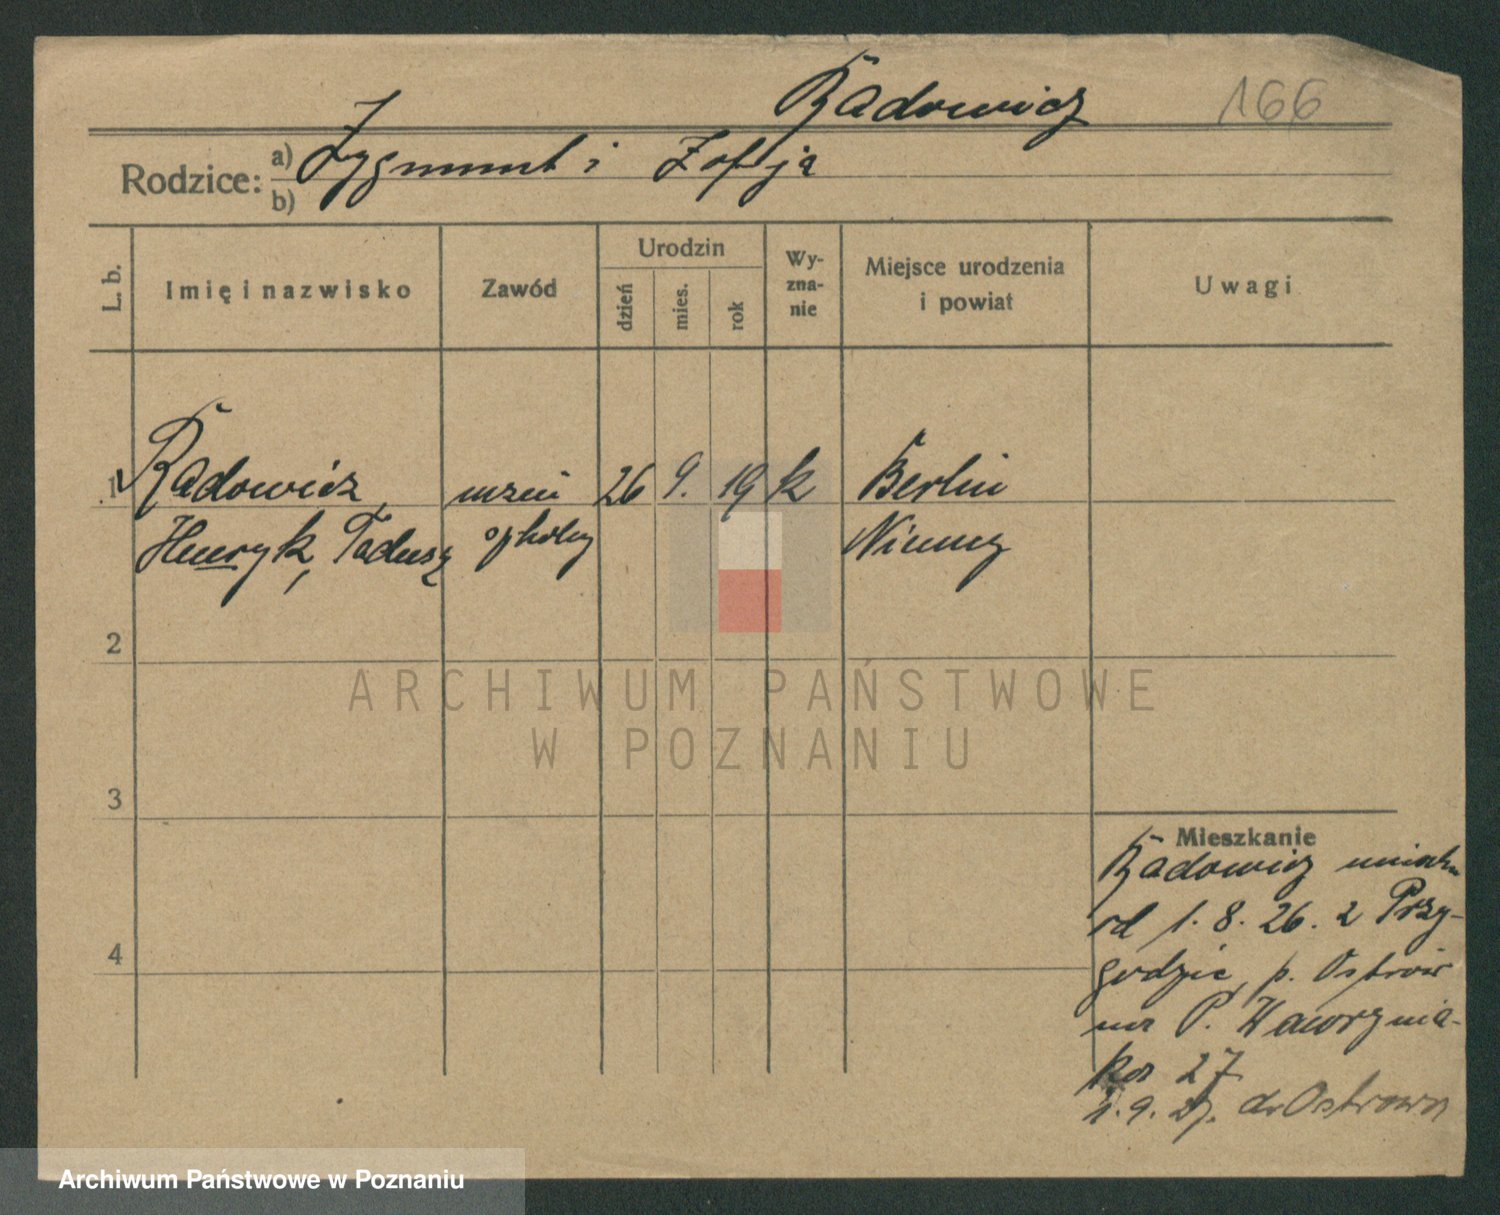 Radowicz 166
Rodzice: a) Zygmunt i Zofja
b)
L. b. Imię i nazwisko Zawód Urodzin dzień mies. rok Wy-zna-nie Miejsce urodzenia i powiat Uwagi
1 Radowicz uczeń 26 9. 19 k Berlin
Henryk, Tadeusz Niemcy
2
3
4
Mieszkanie
Radowicz
od 1. 8. 26. z Przy-
godzic, p. Ostrów
na P. Wawrzynia-
ka 27
1. 9. 27. do Ostrowa
ARCHIWUM PAŃSTWOWE
W POZNANIU
Archiwum Państwowe w Poznaniu